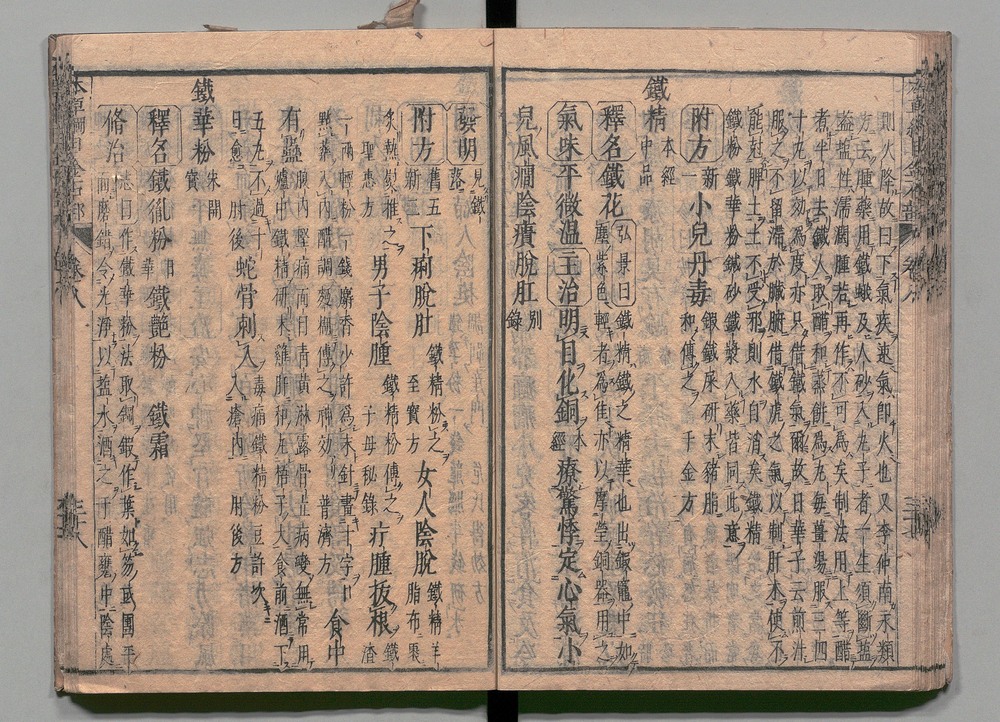 則火降故曰下氣疾速氣即火也又李仲南永類
方云腫藥用鐵蛾及人砂入丸子者一生須斷鹽
蓋鹽性濡潤腫若再作不可爲矣制法用上等醋
煮半日去鐵人取醋和蒸餅爲丸每薑湯服三四
十丸以效爲度亦只借鐵氣爾故日華子云煎汁
服之不留滯於臟腑借鐵虎之氣以制肝木使不
能尅脾土土不受邪則水自消矣鐵精
鐵粉鐵華粉鐵砂鐵漿入藥皆同此意
附方 新一 小兒丹毒 鍜鐵屎研末豬脂和傅之 千金方
鐵精 本經中品
釋名 鐵花 弘景曰鐵精鐵之精華也出鍛竈中如塵紫色輕者爲佳亦以摩塋銅器用之
氣味平微温主治明目化銅 本經 療驚悸定心氣小
兒風癇陰㿉脫肛 别錄
發明 見鐵落
附方 舊五新一 下痢脫肛 鐵精粉傅之 至寶方 女人陰脫 鐵精羊脂布裹
炙熱熨推之 聖惠方 男子陰腫 鐵精粉傅之 子母秘錄 疔腫拔根 鐵渣
一兩輕粉一錢麝香少許爲末針畫十字口
點藥入內醋調麪糊傅之神效 普濟方 食中
有蠱 腹內堅痛面目青黃淋露骨立病變無常用爐中鐵精研末雞肝和丸梧子大食前酒下
五丸不過十日愈 肘後 蛇骨刺人 毒痛鐵精粉豆許吹入瘡內 肘後方
鐵華粉 宋開寶
釋名 鐵胤粉 日華 鐵艷粉 鐵霜
脩治 志曰作鐵華粉法取鋼鍛作葉如笏或團平面磨錯令光淨以鹽水洒之于醋甕中陰處